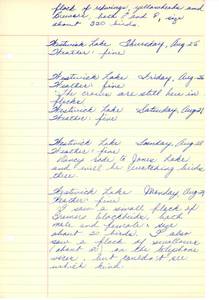 flock of redwings, yellowheads and
Brewers, both ♂ and ♀, say
about 300 birds.
Westwick Lake Thursday, Aug 25
Weather: fine
Westwick Lake Friday, Aug 26
Weather: fine
The crows are still here in
flocks
Westwick Lake Saturday, Aug 27
Weather: fine
Westwick Lake Sunday, Aug 28
Weather: fine
Nancy rode to Jones Lake
and will be watching birds
there
Westwick Lake Monday Aug 29
Weather: fine
I saw a small flock of
Brewers blackbirds, both
male and female, say
about 20 birds. I also
saw a flock of swallows
(about 20) on the telephone
wires, but couldn't see
which kind.